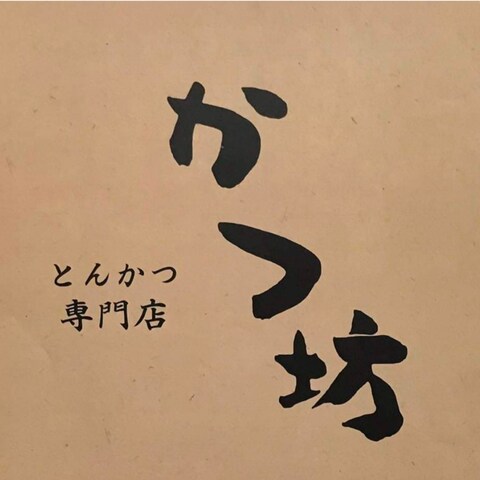 かつ坊
とんかつ
専門店